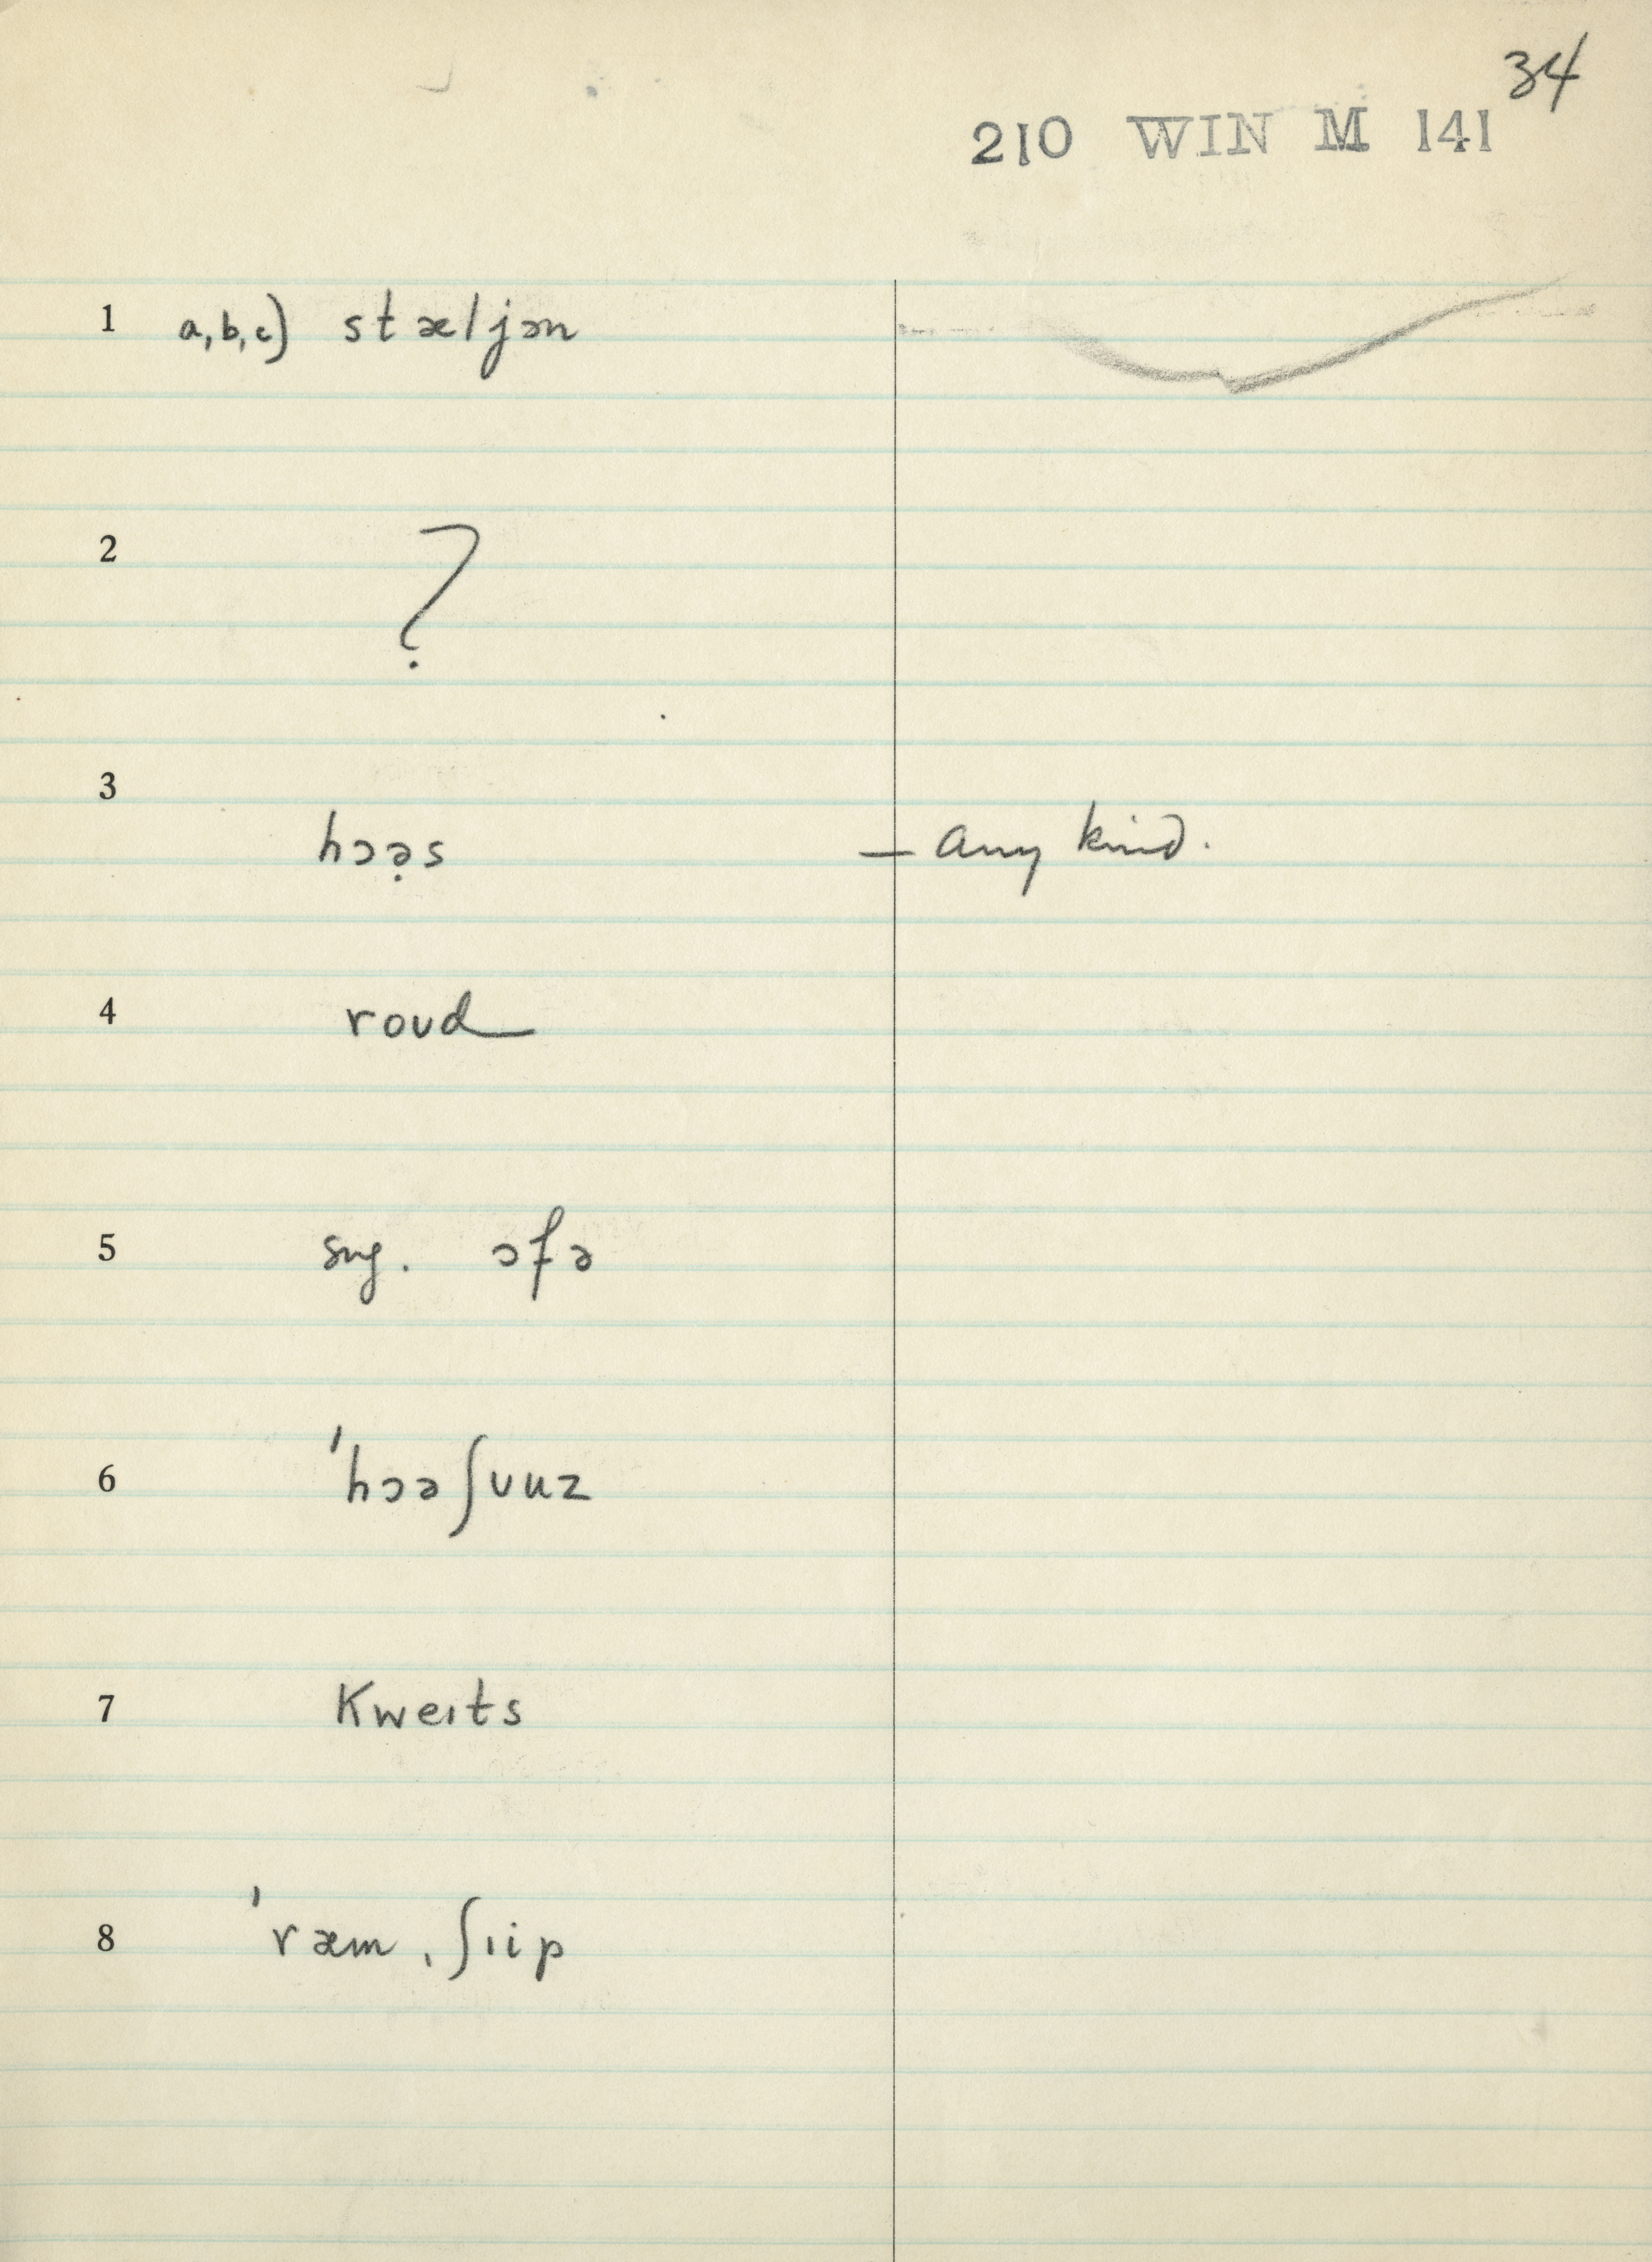 34
210 WIN M 141
1 a,b,c) stæljən
2 ?
3
hɔə̣s — any kind.
4 roud
5 sug. ɔfə
6 'hɔəʃuuz
7 Kweɪts
8 'ræm ˌʃɪip